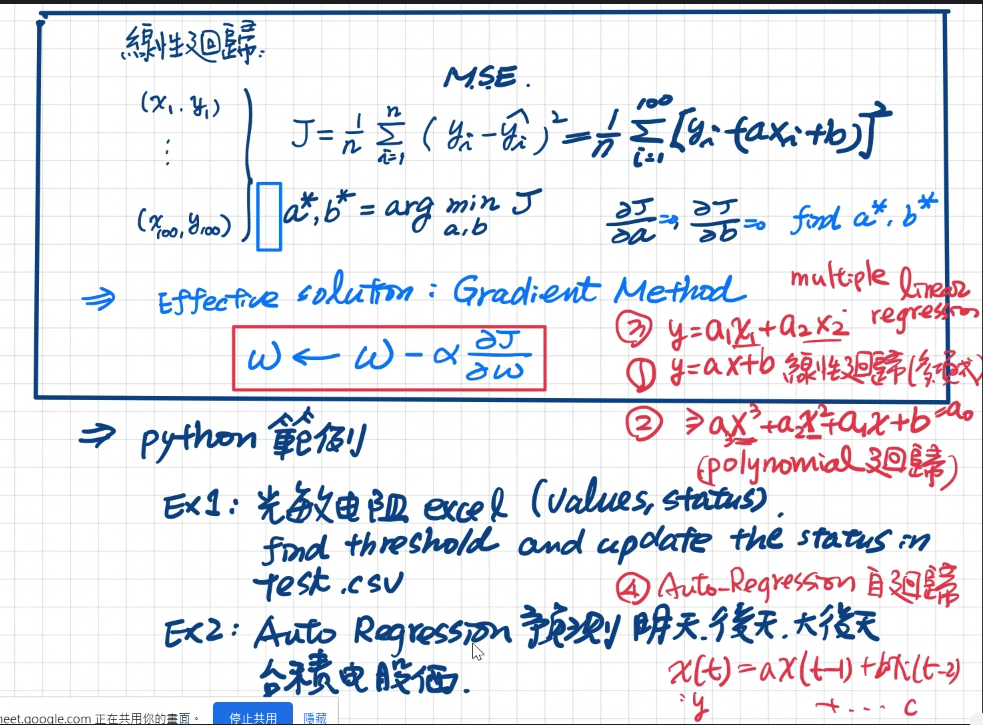 線性迴歸:
M.S.E.
(x₁, y₁)
⋮
(x₁₀₀, y₁₀₀)
J = 1/n Σ_{i=1}^{n} (yᵢ - ŷᵢ)² = 1/n Σ_{i=1}^{100} [yᵢ - (axᵢ+b)]²
a*, b* = arg min_{a,b} J
∂J/∂a ⇒ ∂J/∂b = 0 find a*, b*
⇒ Effective solution : Gradient Method
w ← w - α ∂J/∂w
multiple linear
regression
③ y = a₁x₁ + a₂x₂
① y = ax+b 線性迴歸
② ⇒ a₃x³+a₂x²+a₁x+b =a₀
(polynomial 迴歸)
⇒ python 範例
Ex1: 光敏电阻 excel (values, status).
find threshold and update the status in
test.csv
④ Auto-Regression 自迴歸
Ex2: Auto Regression 預測 明天.後天.大後天
台積电股価.
x(t) = ax(t-1) + bx(t-2)
: y + ... c
meet.google.com 正在共用你的畫面。
停止共用
隱藏